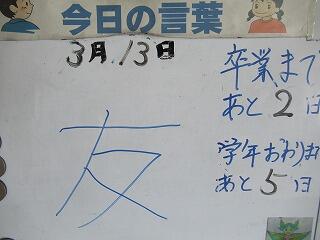 今日の言葉
3月13日
友
卒業まで
あと2日
学年おわりまで
あと5日